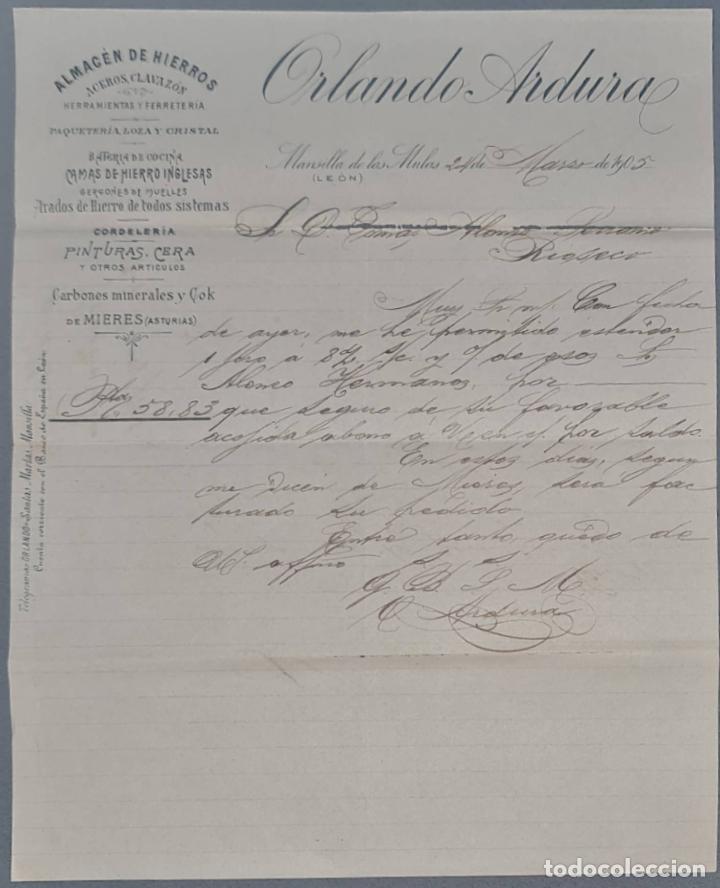 ALMACÉN DE HIERROS
ACEROS, CLAVAZÓN
HERRAMIENTAS Y FERRETERIA
PAQUETERÍA, LOZA Y CRISTAL
BATERIA DE COCINA
CAMAS DE HIERRO INGLESAS
GERGONES DE MUELLES
Arados de Hierro de todos sistemas
CORDELERÍA
PINTURAS, CERA
Y OTROS ARTICULOS
Carbones minerales y Cok
DE MIERES (ASTURIAS)
Telegramas ORLANDO-Santas Martas, Mansilla
Cuenta corriente con el Banco de España en León
Orlando Ardura
Mansilla de las Mulas 24 de Marzo de 1905
(LEÓN)
Sr. D. Tomás Alonso
Rioseco
Muy Sr. mf. Con fecha
de ayer, me he permitido estender
1 giro á 8 d/ y de esos Sr
Alonso Hermanos, por
Ptas 58,83 que seguro de su favorable
acojida abono á V. en c/ por saldo.
En estos días, segun
me dicen de Mieres, sera fac
turado su pedido.
Entre tanto, quedo de
Vd. affmo S. S.
Q. B. S. M.
O. Ardura
todocoleccion.net